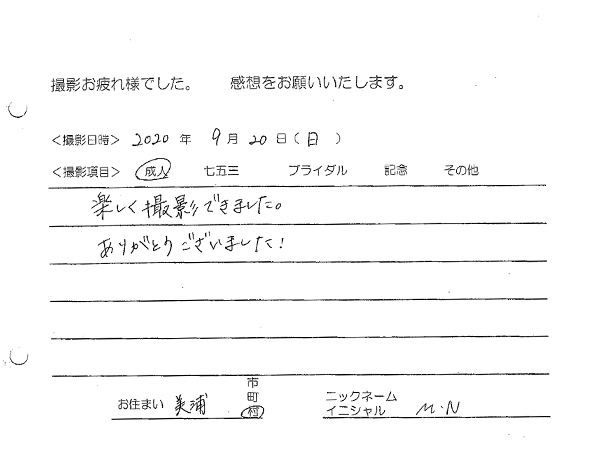 撮影お疲れ様でした。 感想をお願いいたします。
<撮影日時> 2020 年 9 月 20 日 ( 日 )
<撮影項目> 成人 七五三 ブライダル 記念 その他
楽しく撮影できました。
ありがとうございました!
お住まい 美浦 市 町 村
ニックネーム イニシャル M・N